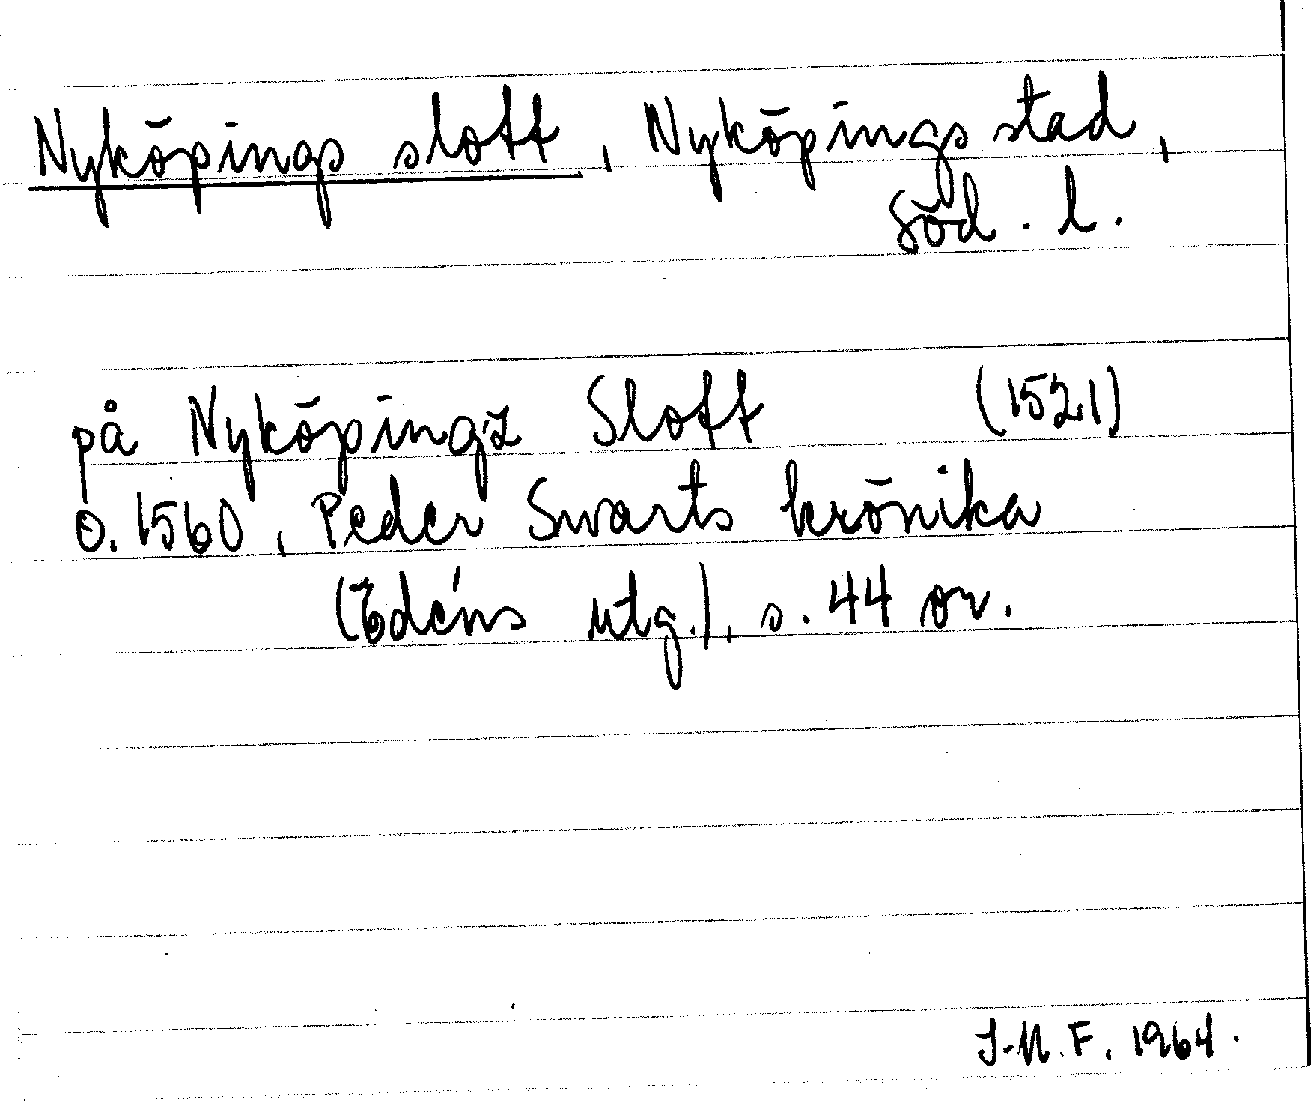 Nyköpings slott, Nyköpings stad,
Söd. l.
på Nyköpingz Slott (1521)
o. 1560, Peder Swarts krönika
(Edéns utg.), s. 44 ov.
J-M. F. 1964.